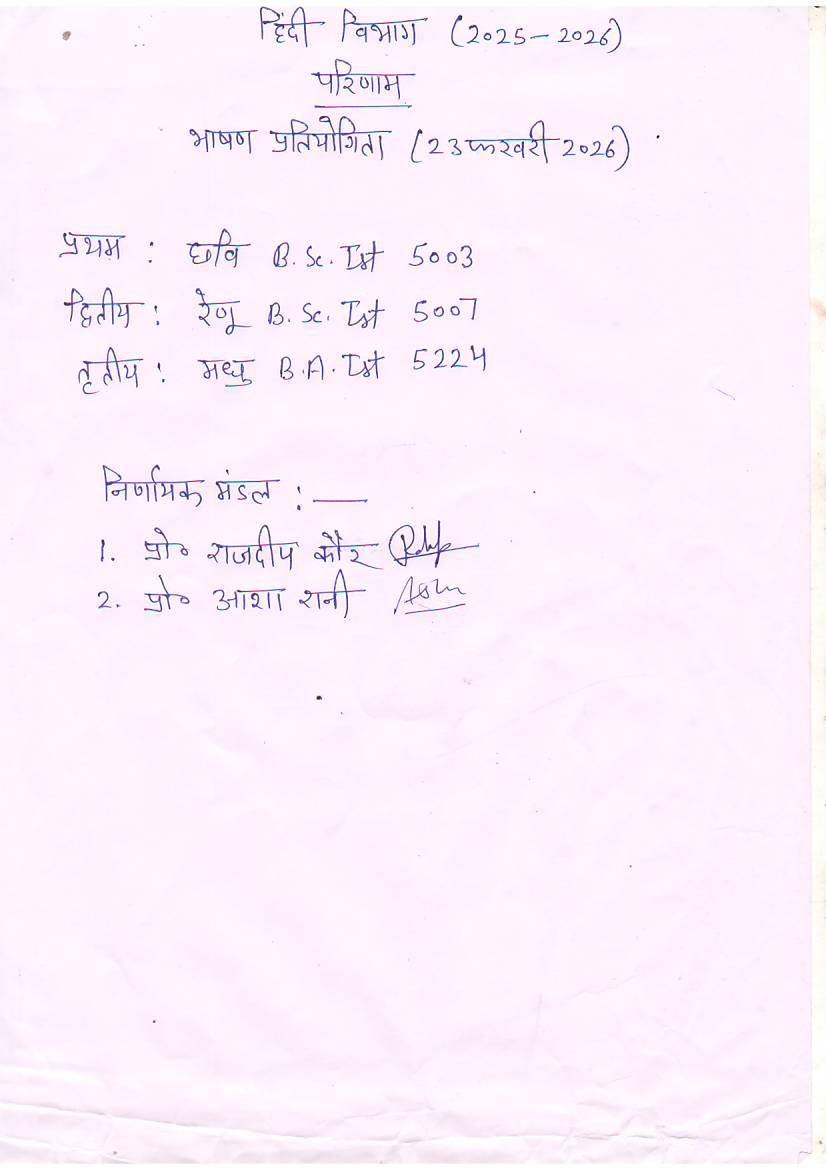 हिंदी विभाग (2025-2026)
परिणाम
भाषण प्रतियोगिता (23 फरवरी 2026)
प्रथम : छवि B.Sc. Ist 5003
द्वितीय : रेणू B.Sc. Ist 5007
तृतीय : मधु B.A. Ist 5224
निर्णायक मंडल :—
1. प्रो० राजदीप कौर
2. प्रो० आशा रानी